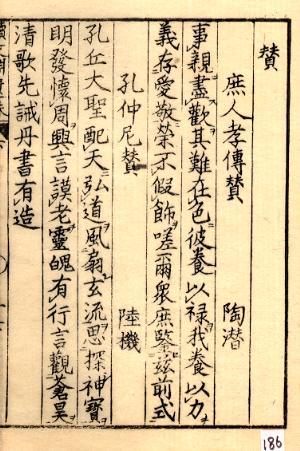 賛
庶人孝傳賛 陶潜
事親盡歡其難在色彼養以禄我養以力
義存愛敬榮不假飾嗟爾衆庶鑒兹前式
孔仲尼賛 陸機
孔丘大聖配天弘道風扇玄流思探神寳
明發懷周興言謨老靈魄有行言觀蒼昊
清歌先誡丹書有造
186